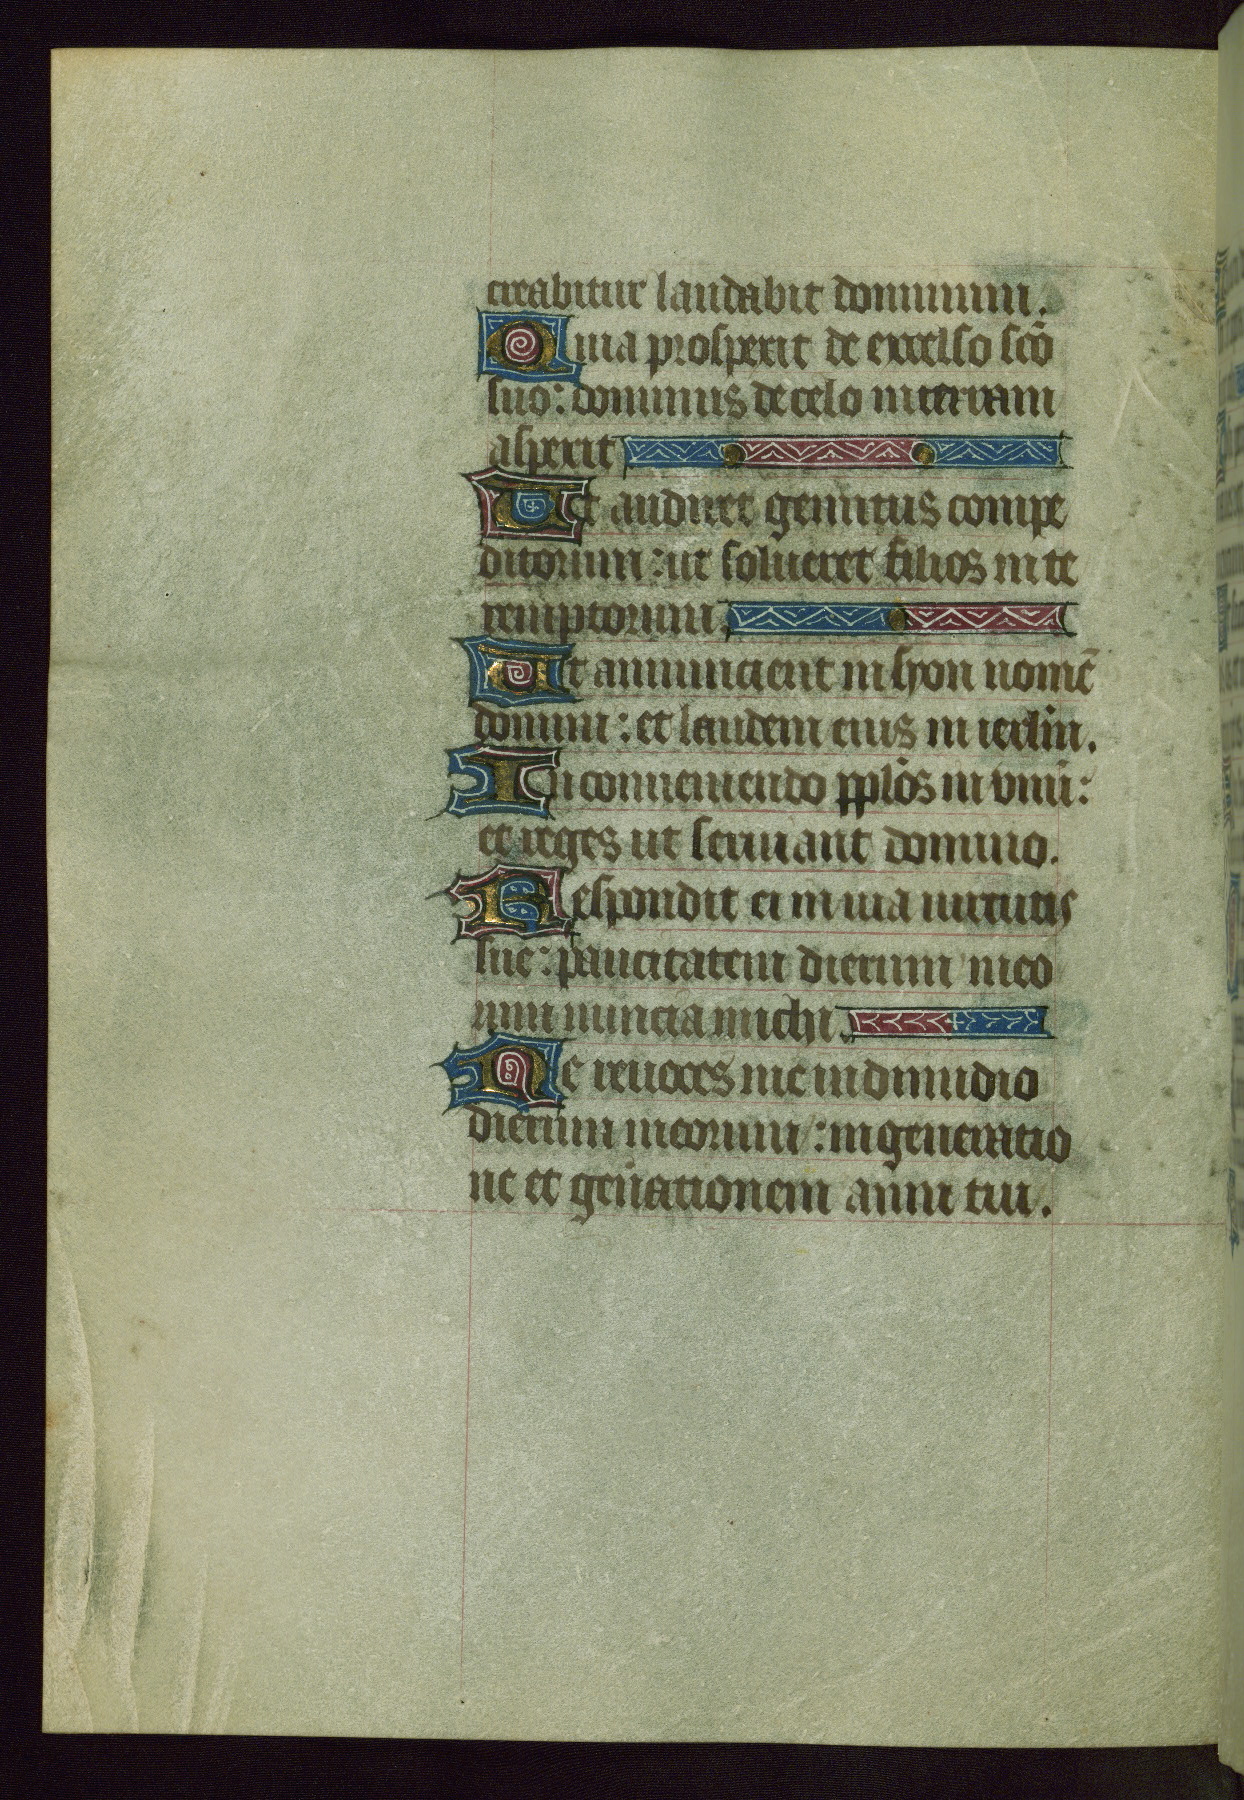 creabitur laudabit dominum.
Quia prospexit de excelso scō
suo: dominus de celo in terram
aspexit
Ut audiret gemitus compe
ditorum: ut solueret filios inte
remptorum.
Ut annuncient in syon nomē
domini: et laudem eius in ierl̄m.
In conueniendo ppl̄os in vnū:
et reges ut seruiant domino.
Respondit ei in uia uirtutis
sue: paucitatem dierum meo
rum nuncia michi.
Ne reuoces me in dimidio
dierum meorum: in generatio
ne et gen̄ationem anni tui.